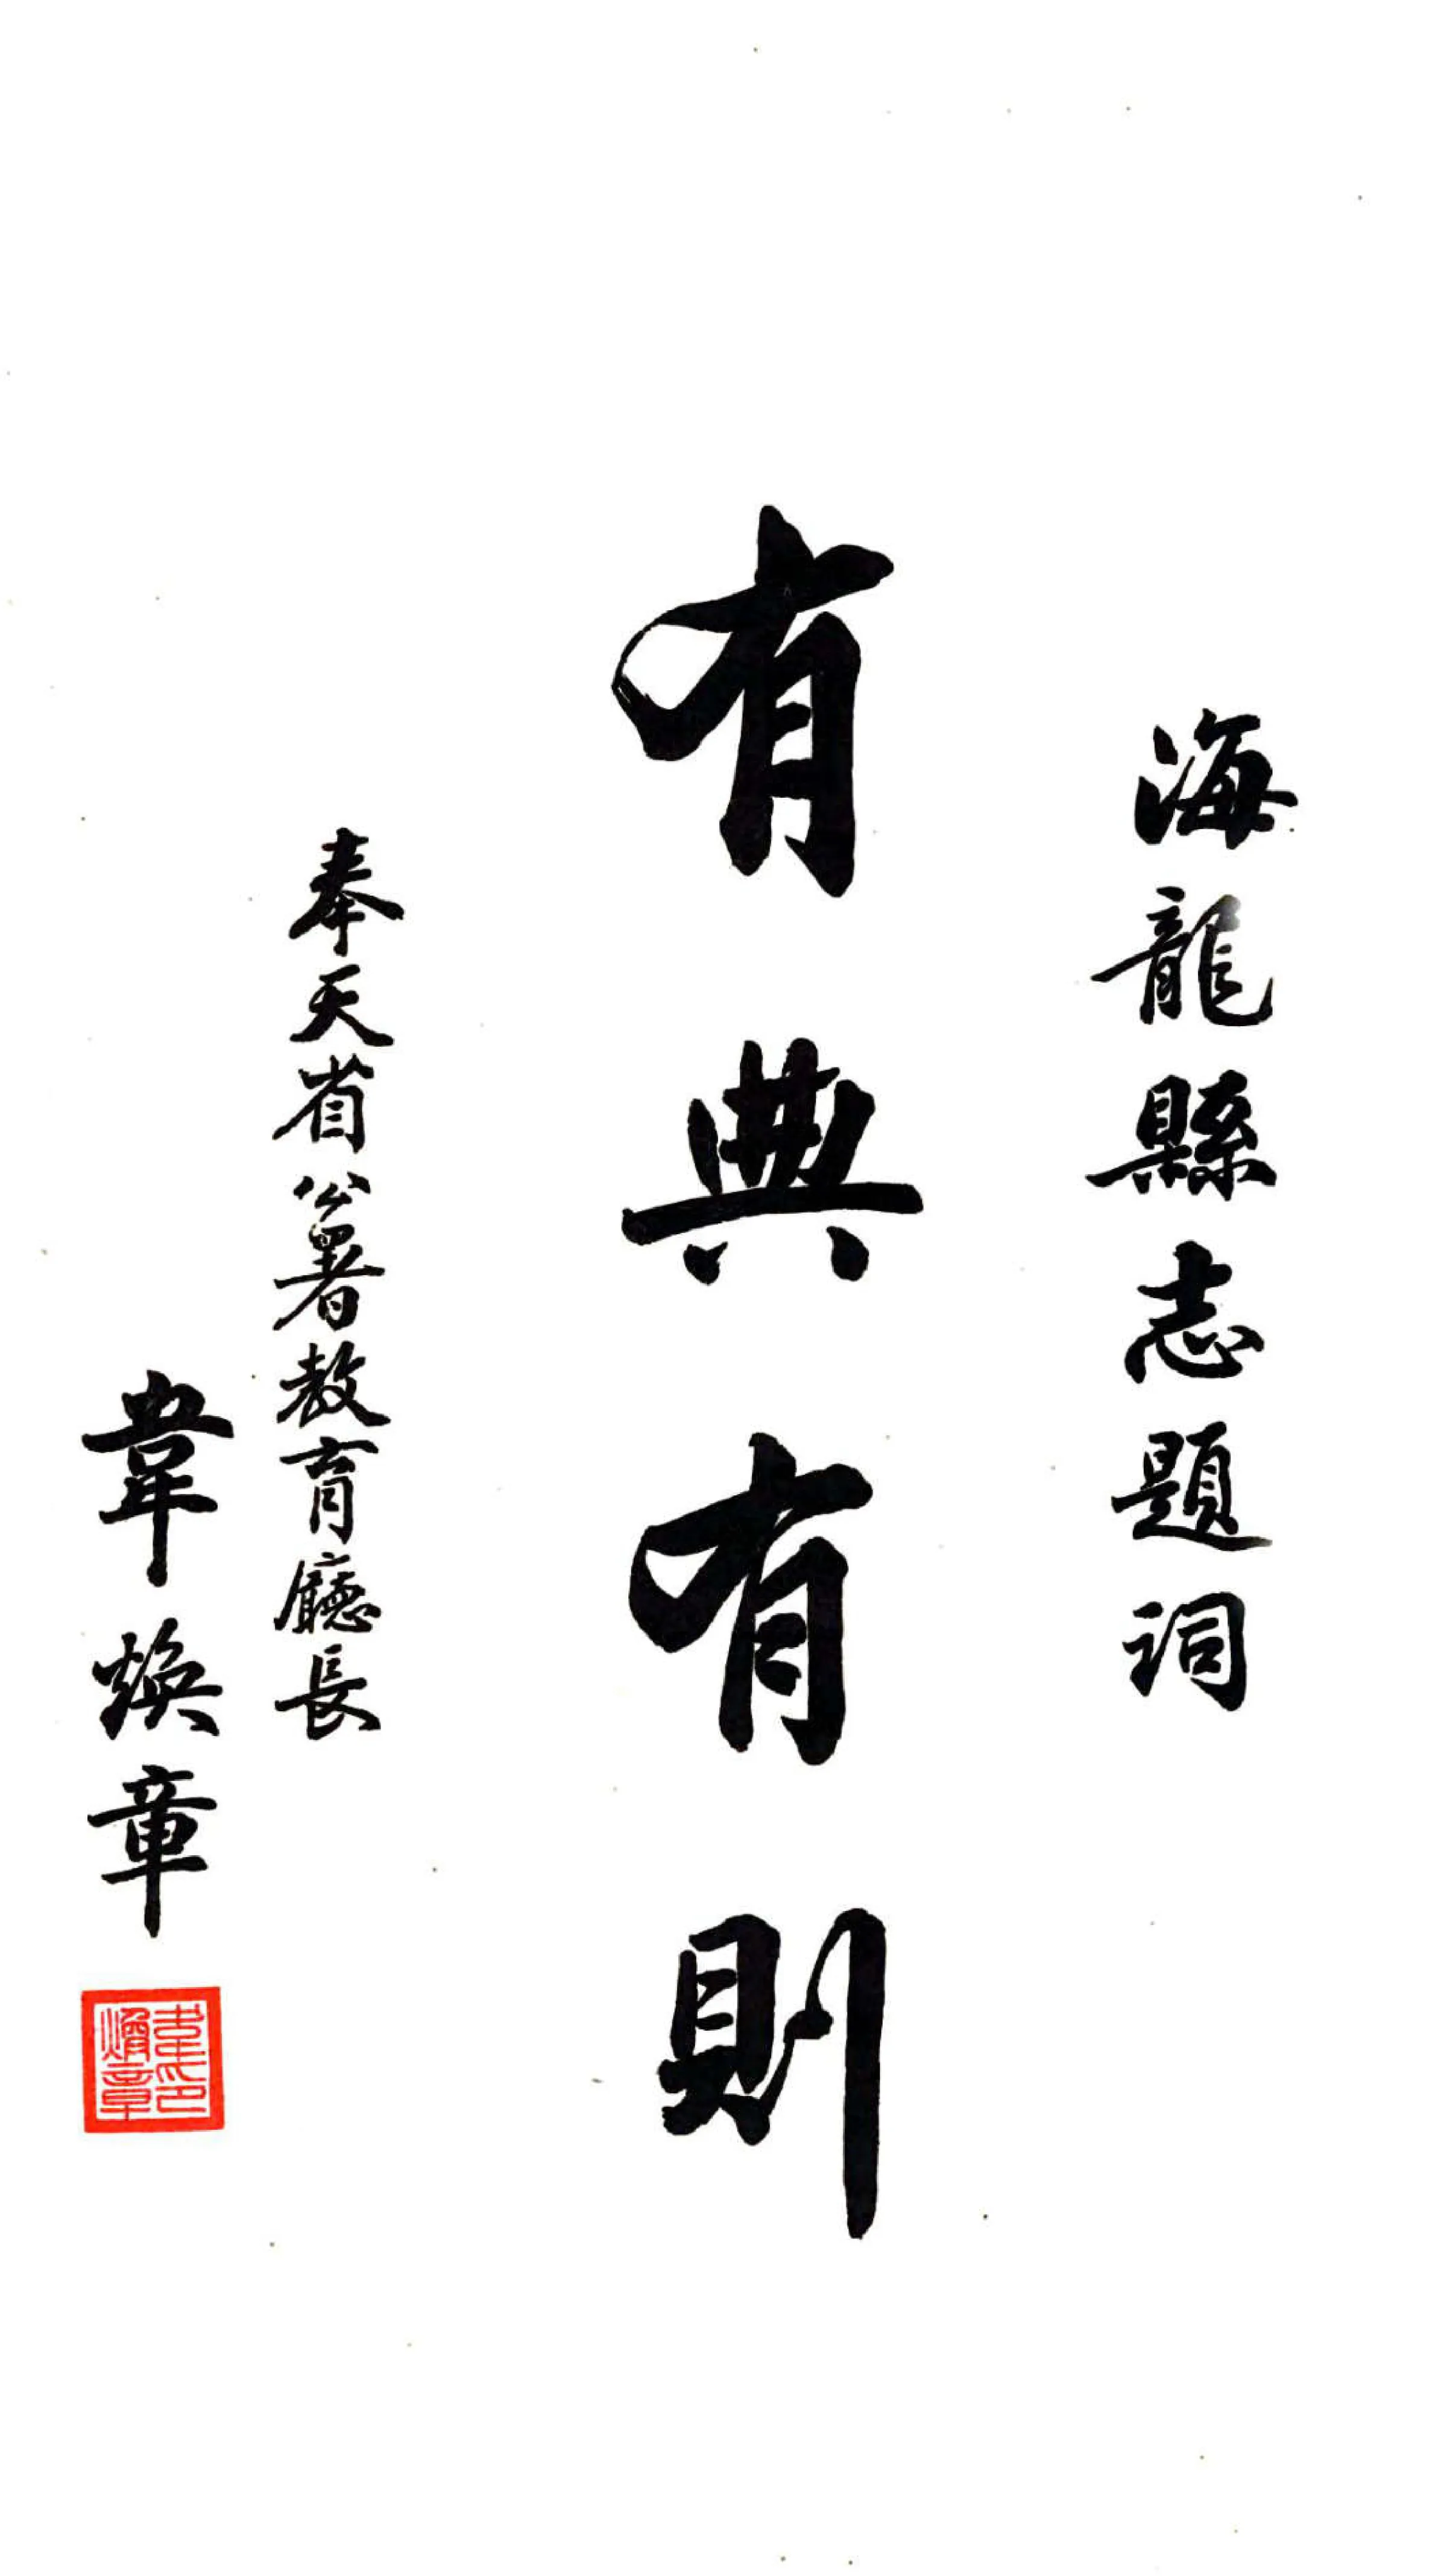 海龍縣志題詞
有典有則
奉天省公署教育廳長
韋煥章
韋印
煥章